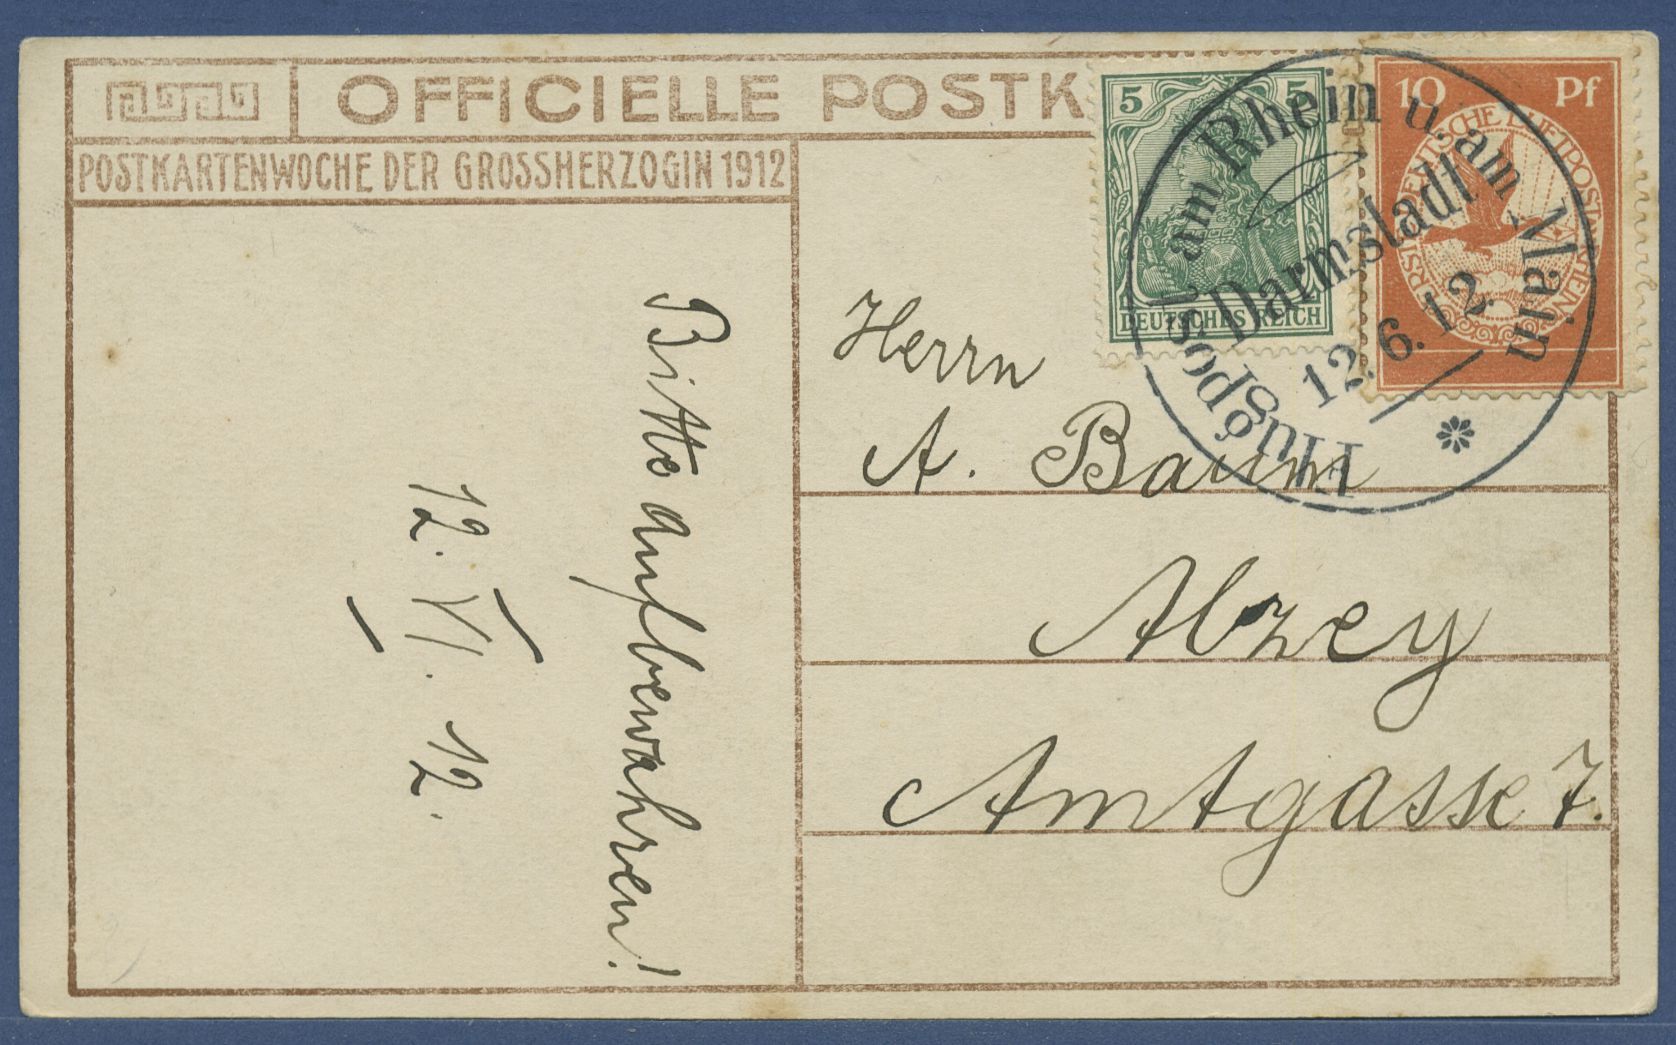 OFFICIELLE POSTK
POSTKARTENWOCHE DER GROSSHERZOGIN 1912
5 5
DEUTSCHES REICH
10 Pf
ERSTE DEUTSCHE LUFTPOST AM RHEIN
Flugpost am Rhein u. am Main
Darmstadt
12. 6. 12.
Herrn
A. Baum
Alzey
Amtgasse 7.
Bitte aufbewahren!
12. VI. 12.